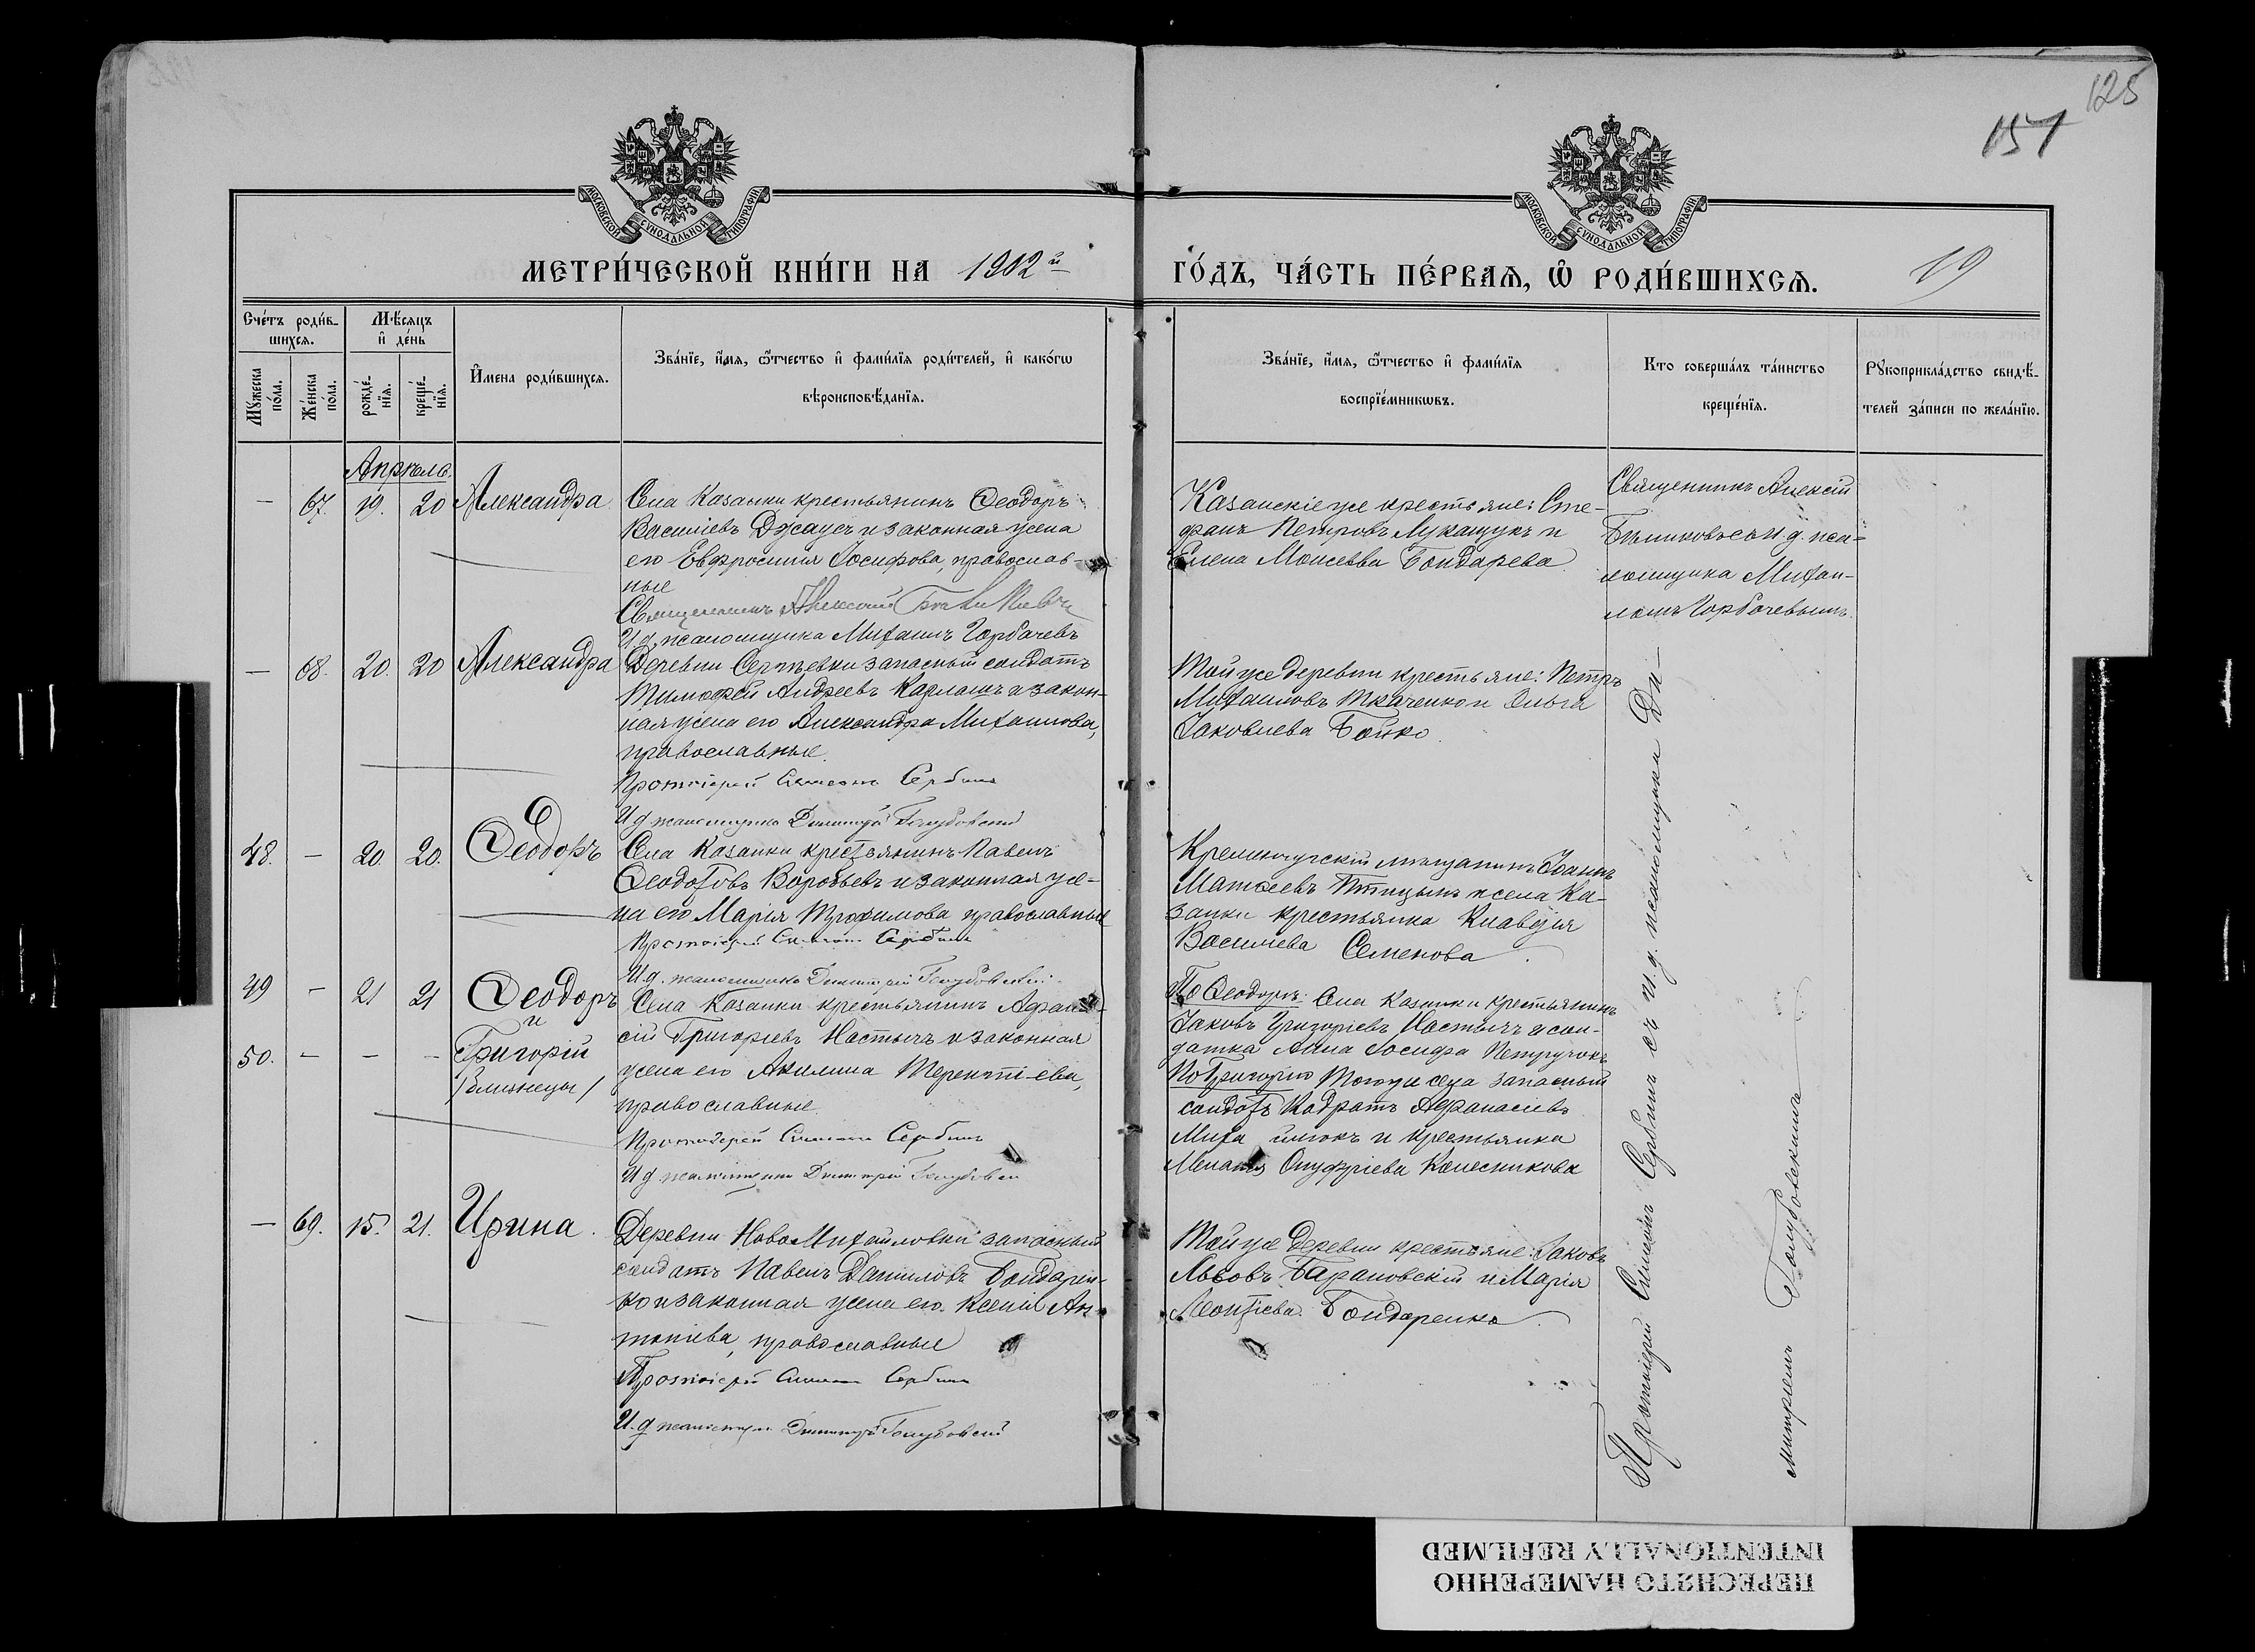 125
157
МОСКОВСКОЙ СѴНОДАЛЬНОЙ ТИПОГРАФІИ
МОСКОВСКОЙ СѴНОДАЛЬНОЙ ТИПОГРАФІИ
МЕТРИ́ЧЕСКОЙ КНИ́ГИ НА 1902й
ГО́ДЪ, ЧА́СТЬ ПЕ́РВАѦ, Ѡ҆ РОДИ́ВШИХСѦ.
19
Сче́тъ роди́в-
шихсѧ.
Мѣ́сѧцъ
и҆ де́нь
Мꙋ́жеска
по́ла.
Же́нска
по́ла.
рожде́-
нїѧ.
креще́-
нїѧ.
И҆мена роди́вшихсѧ.
Зва́нїе, и҆́мѧ, ѻ҆́тчество и҆ фами́лїѧ роди́телей, и҆ како́гѡ
вѣроисповѣ́данїѧ.
Зва́нїе, и҆́мѧ, ѻ҆́тчество и҆ фами́лїѧ
воспрїе́мникѡвъ.
Кто соверша́лъ та́инство
креще́нїѧ.
Рꙋкоприкла́дство свидѣ́-
телей за́писи по жела́нїю.
Апрѣль.
— 67. 19. 20 Александра
Села Казанки крестьянинъ Ѳеодоръ
Василіевъ Джаует и законная жена
его Евфросинія Іосифова, православ-
ные
Священникъ Алексій
И.д. псаломщика Михаилъ Горбачевъ
Казанскіе же крестьяне: Сте-
фанъ Петровъ Лукащукъ и
Елена Моисеева Бондарева
Священникъ Алексій
съ и.д. пса-
ломщика Михаи-
ломъ Горбачевымъ.
— 68. 20. 20 Александра
Деревни Сергѣевки запасный солдатъ
Тимофей Андреевъ Карлашъ и закон-
ная жена его Александра Михаилова,
православные.
Протоіерей Симеонъ Сербинъ
И.д. псаломщика Димитрій Голубовскій
Той же деревни крестьяне: Петръ
Михаиловъ Ткаченко и Ольга
Іаковлева Бойко
48. — 20. 20. Ѳеодоръ
Села Казанки крестьянинъ Павелъ
Ѳеодотовъ Воробьевъ и законная же-
на его Марія Трофимова православные
Протоіерей Симеонъ Сербинъ
И.д. псаломщика Димитрій Голубовскій
Кременчугскій мѣщанинъ Іоаннъ
Матѳеевъ Птицынъ и села Ка-
занки крестьянка Клавдія
Василіева Семенова.
49 — 21 21 Ѳеодоръ
и
50. — — — Григорій
/близнецы/
Села Казанки крестьянинъ Афана-
сій Григоріевъ Настычъ и законная
жена его Акилина Терентіева,
православные.
Протоіерей Симеонъ Сербинъ
И.д. псаломщика Димитрій Голубовскій
По Ѳеодоръ: Села Казанки крестьянинъ
Іаковъ Григоріевъ Настычъ и сол-
датка Анна Іосифа Петручокъ
По Григорію Того же села запасный
солдатъ Кодратъ Афанасіевъ
и крестьянка
Меланія Онуфріева Колесникова
— 69. 15. 21. Ирина.
Деревни НовоМихайловки запасный
солдатъ Павелъ Даниловъ Бондарен-
ко и законная жена его Ксенія Ан-
тоніева, православные
Протоіерей Симеонъ Сербинъ
И.д. псаломщика Димитрій Голубовскій
Той же деревни крестьяне: Іаковъ
Львовъ Барановскій и Марія
Леонтіева Бондаренко.
Протоіерей Симеонъ Сербинъ съ и.д. псаломщика Ди-
митріемъ Голубовскимъ
ПЕРЕСНЯТО НАМЕРЕННО
INTENTIONALLY REFILMED